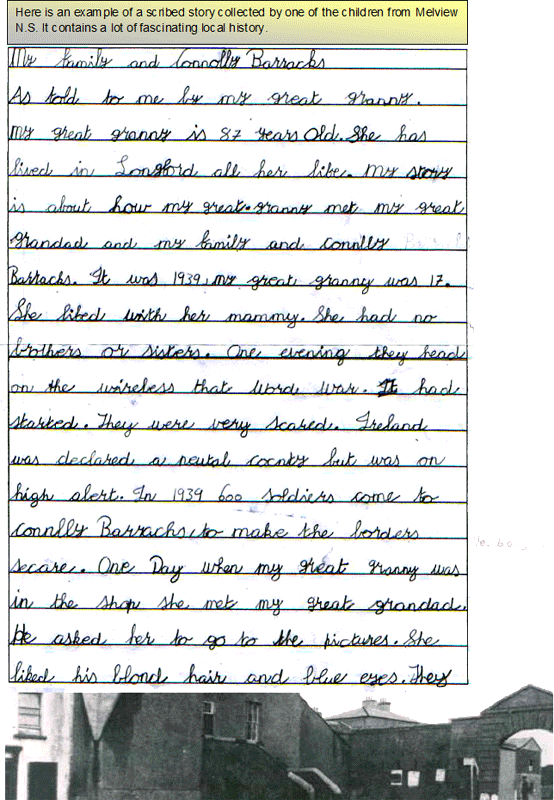 Here is an example of a scribed story collected by one of the children from Melview
N.S. It contains a lot of fascinating local history.
My family and Connolly Barracks
As told to me by my great granny.
My great granny is 87 years Old. She has
lived in Longford all her life. My story
is about how my great-granny met my great
grandad and my family and connlly
Barracks. It was 1939, my great granny was 17.
She libed with her mammy. She had no
brothers or sisters. One evening they head
on the wireless that word war. It had
started. They were very scared. Ireland
was declared a neutal cocntry but was on
high alert. In 1939 600 soldiers come to
connlly Barracks, to make the borders
secare. One Day when my great granny was
in the shop she met my great grandad.
He asked her to go to the pictures. She
liked his blond hair and blue eyes. They